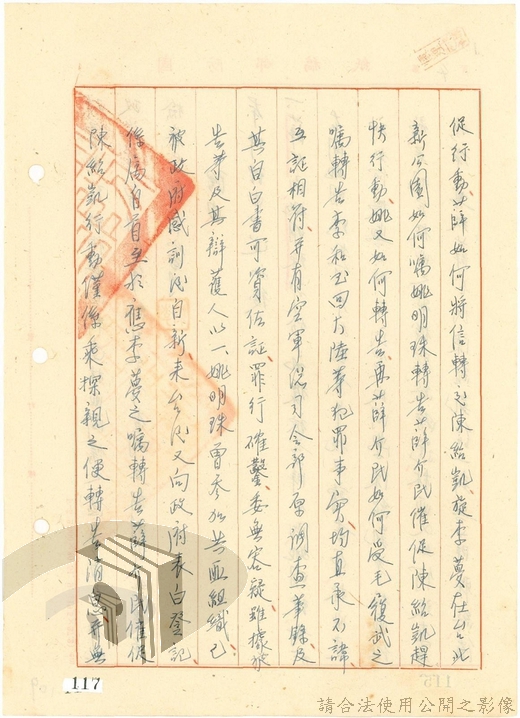 促行動、薛如何將信轉交陳紹凱、旋李蔓在台北
新公園如何囑姚明珠轉告薛介民催促陳紹凱趕
快行動、姚又如何轉告、再薛介民如何受毛履武之
囑轉告李和玉回大陸等犯罪事實、均直承不諱
互証相符、并有空軍總司令部原調查筆錄及
其自白書可資佐証、罪行確鑿、委無容疑、雖據被
告等及其辯護人以一、姚明珠曾參加共匪組織、已
被政府感訓後自新、來台後又向政府表白登記
係屬自首、至於應李蔓之囑轉告薛介民催促
陳紹凱行動、僅係乘探親之便轉告消息、并無
117
請合法使用公開之影像